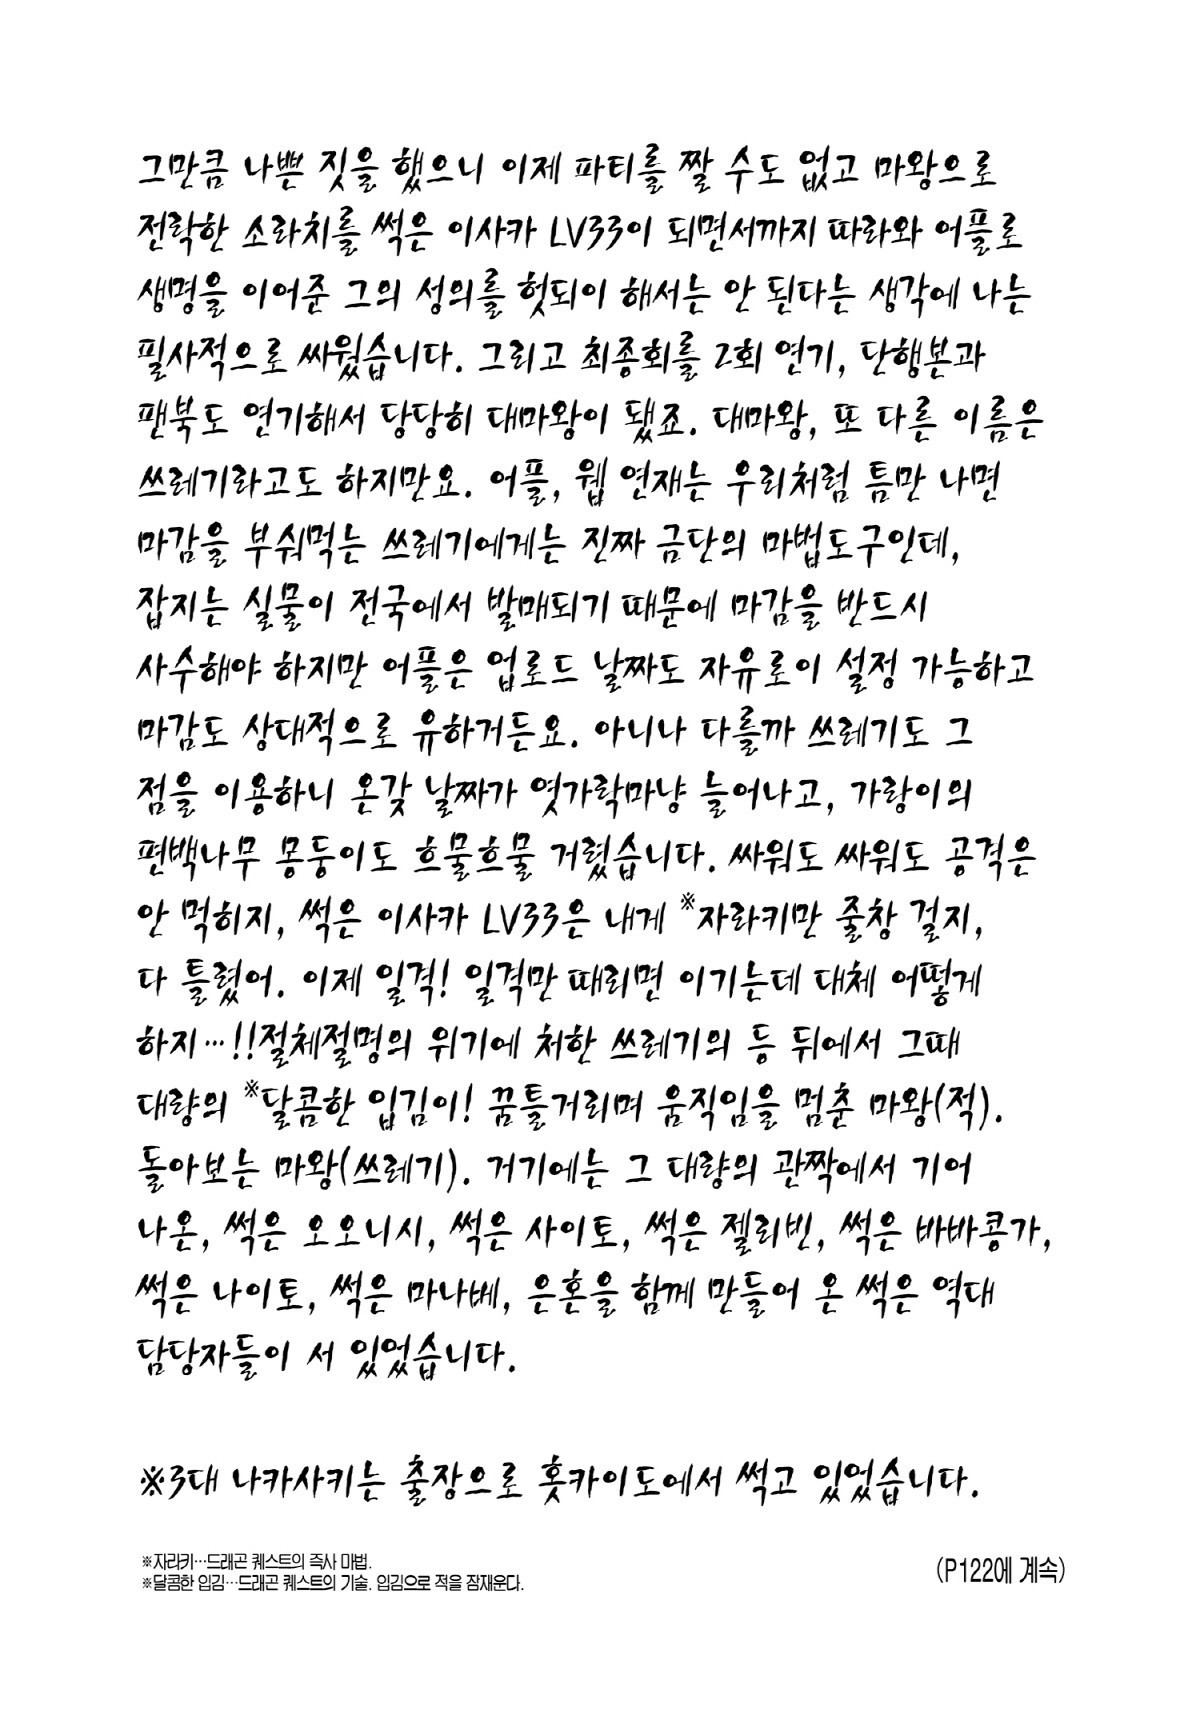 그만큼 나쁜 짓을 했으니 이제 파티를 짤 수도 없고 마왕으로
전락한 소라치를 썩은 이사카 LV33이 되면서까지 따라와 어플로
생명을 이어준 그의 성의를 헛되이 해서는 안 된다는 생각에 나는
필사적으로 싸웠습니다. 그리고 최종회를 2회 연기, 단행본과
팬북도 연기해서 당당히 대마왕이 됐죠. 대마왕, 또 다른 이름은
쓰레기라고도 하지만요. 어플, 웹 연재는 우리처럼 틈만 나면
마감을 부숴먹는 쓰레기에게는 진짜 금단의 마법도구인데,
잡지는 실물이 전국에서 발매되기 때문에 마감을 반드시
사수해야 하지만 어플은 업로드 날짜도 자유로이 설정 가능하고
마감도 상대적으로 유하거든요. 아니나 다를까 쓰레기도 그
점을 이용하니 온갖 날짜가 엿가락마냥 늘어나고, 가랑이의
편백나무 몽둥이도 흐물흐물 거렸습니다. 싸워도 싸워도 공격은
안 먹히지, 썩은 이사카 LV33은 내게 ※자라키만 줄창 걸지,
다 틀렸어. 이제 일격! 일격만 때리면 이기는데 대체 어떻게
하지…!!절체절명의 위기에 처한 쓰레기의 등 뒤에서 그때
대량의 ※달콤한 입김이! 꿈틀거리며 움직임을 멈춘 마왕(적).
돌아보는 마왕(쓰레기). 거기에는 그 대량의 관짝에서 기어
나온, 썩은 오오니시, 썩은 사이토, 썩은 젤리빈, 썩은 바바콩가,
썩은 나이토, 썩은 마나베, 은혼을 함께 만들어 온 썩은 역대
담당자들이 서 있었습니다.
※3대 나카사키는 출장으로 홋카이도에서 썩고 있었습니다.
※자라키…드래곤 퀘스트의 즉사 마법.
※달콤한 입김…드래곤 퀘스트의 기술. 입김으로 적을 잠재운다.
(P122에 계속)